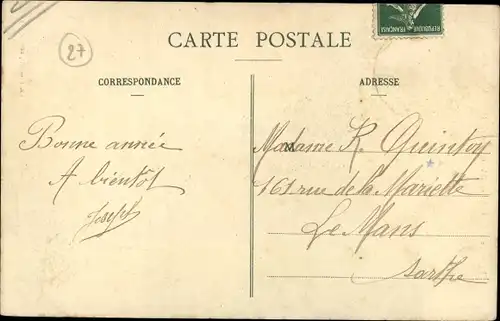 27
REPUBLIQUE FRANÇAISE
CARTE POSTALE
CORRESPONDANCE
ADRESSE
Bonne année
A bientôt
Joseph
Madame R. Quintoy
161 rue de la Mariette
Le Mans
Sarthe